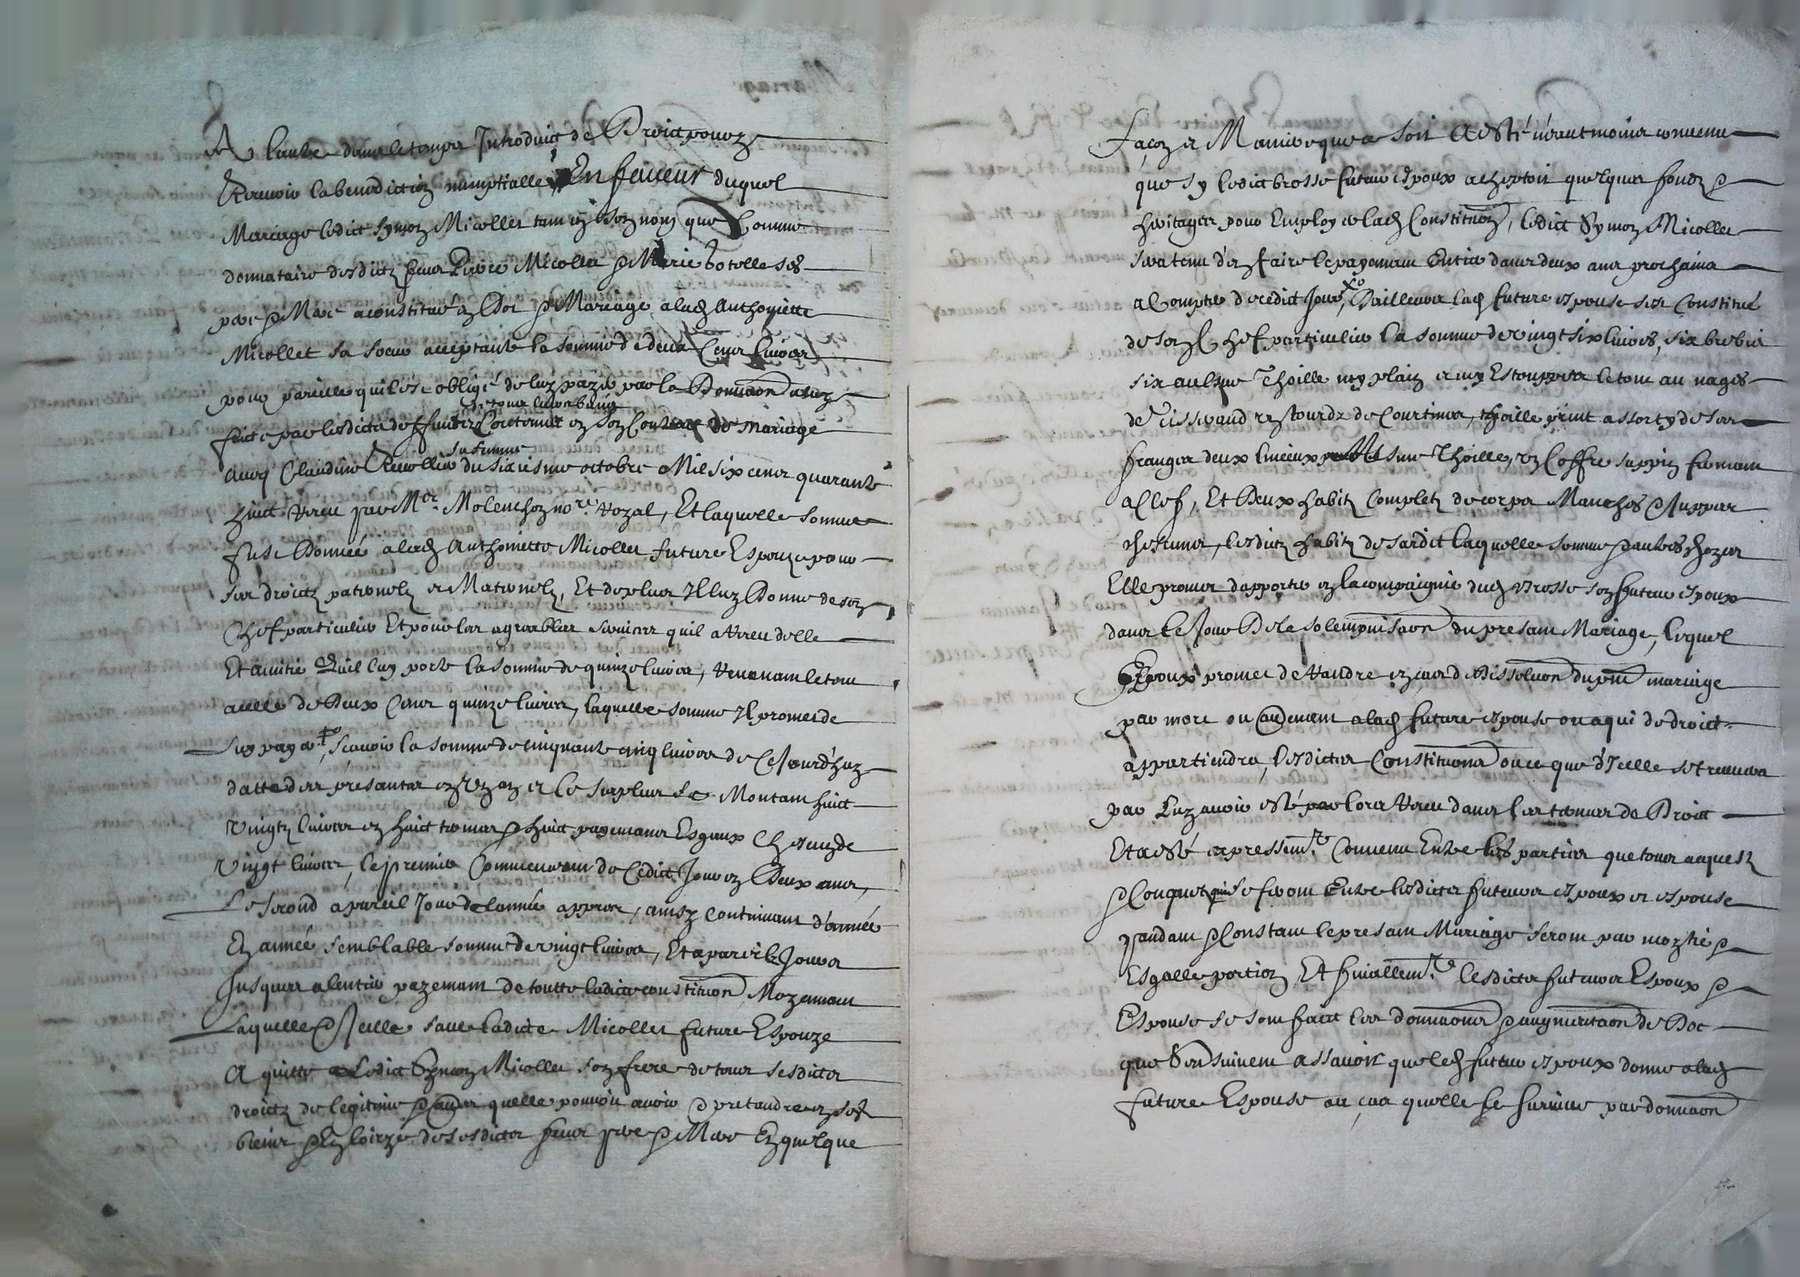 A lautre dans le temps Introduict de Droict pour y
Recepvoir la benediction nuptialle, En faveur duquel
Mariage ledict Symon Micollet tant en son nom que Comme
donnataire desdictz feux Pierre Micollet & Marie botelle ses
pere & Mere a constitué en Dot & Mariage a lad Anthoinette
Micollet sa soeur acceptante la somme de deux Cent livres
pour pareille quil est obligé de luy payer par la Donnaon a luy
faicte par lesdictz deffunctz Contenue en son Contract de mariage
avecq Claudine du sixiesme octobre Mil six cent quarante
huict Receu par Me Molenchon nore Royal, Et laquelle somme
fust Donnée a lad Anthoinette Micollet future Espouze pour
ses droictz paternelz et Maternelz, Et de plus Il luy Donne de son
Chef particulier Et pour les agreables services quil a Receu delle
Et amitié quil luy porte la somme de quinze livres, Revenant le tout
a celle de Deux Cent quinze livres, laquelle somme Il promet de
luy payer, scavoir la somme de cinquante cinq livres de Ce Jourdhuy
datte des presantes et le surplus se Montant huict
vingtz livres en huict termes & huict payements Esgaux Chescung de
vingt livres, le premier Commencant de Cedict Jour en Deux ans,
Le second a pareil Jour de lannée appres, ainsy continuant d'année
En année semblable somme de vingt livres, Et a pareilz Jours
Jusques a lentier payement de toutte ladicte constitution Moyennant
Laquelle & Icelle sauve ladicte Micollet future Espouze
A quitté Ledict Symon Micollet son frere de tous sesdictes
droictz de legitime & autres quelle pouvoit avoir & pretandre en ses
biens & de sesdictes feux pere & Mere En quelque
Facon et Maniere que ce soit A esté néantmoins convenu
que sy ledict brosse futur espoux acheptoit quelques fondz &
heritages pour Employer lad Constitution, ledict Symon Micollet
sera tenu d'en faire le payement Entier dans deux ans prochains
a Compter de cedict Jour, D'ailleurs lad future espouse s'est Constitué
de son Chef particulier la somme de vingt six livres, six brebis
six aulnes Thoille my plain et my Estouppes le tout au
de Tisserand de Courtines, thoille print assorty de ses
franges deux linceux mesme Thoille, un Coffre sappin fermant
a Clef, Et Deux habitz Completz de corps Manches &
lesdictz habitz de sardit laquelle somme & autres chozes
Elle promet d'apporter en la compaignie dud Brosse son futur espoux
dans le Jour De la solempnisaon du presant Mariage, lequel
Espoux promet de Randre en cas de dissolution du pnt mariage
par mort ou aultrement a lad future espouse ou a qui de droict
appartiendra, lesdictes Constitutions ou ce que d'Icelle se treuvera
par luy avoir esté lors Receu dans les termes de Droict
Et a esté expressement Convenu Entre les parties que tous acquestz
& Conquestz qui se feront Entre lesdictes futeurs espoux et espouse
Pandant & Constant le presant Mariage seront par moytié &
Esgalle portion, Et finallement lesdictes futeurs Espoux &
Espouse se sont faict les donnaons & augmentaon de Dot
que Sensuivent assavoir que led futur espoux donne a lad
future Espouse au cas quelle le survive par donnaon